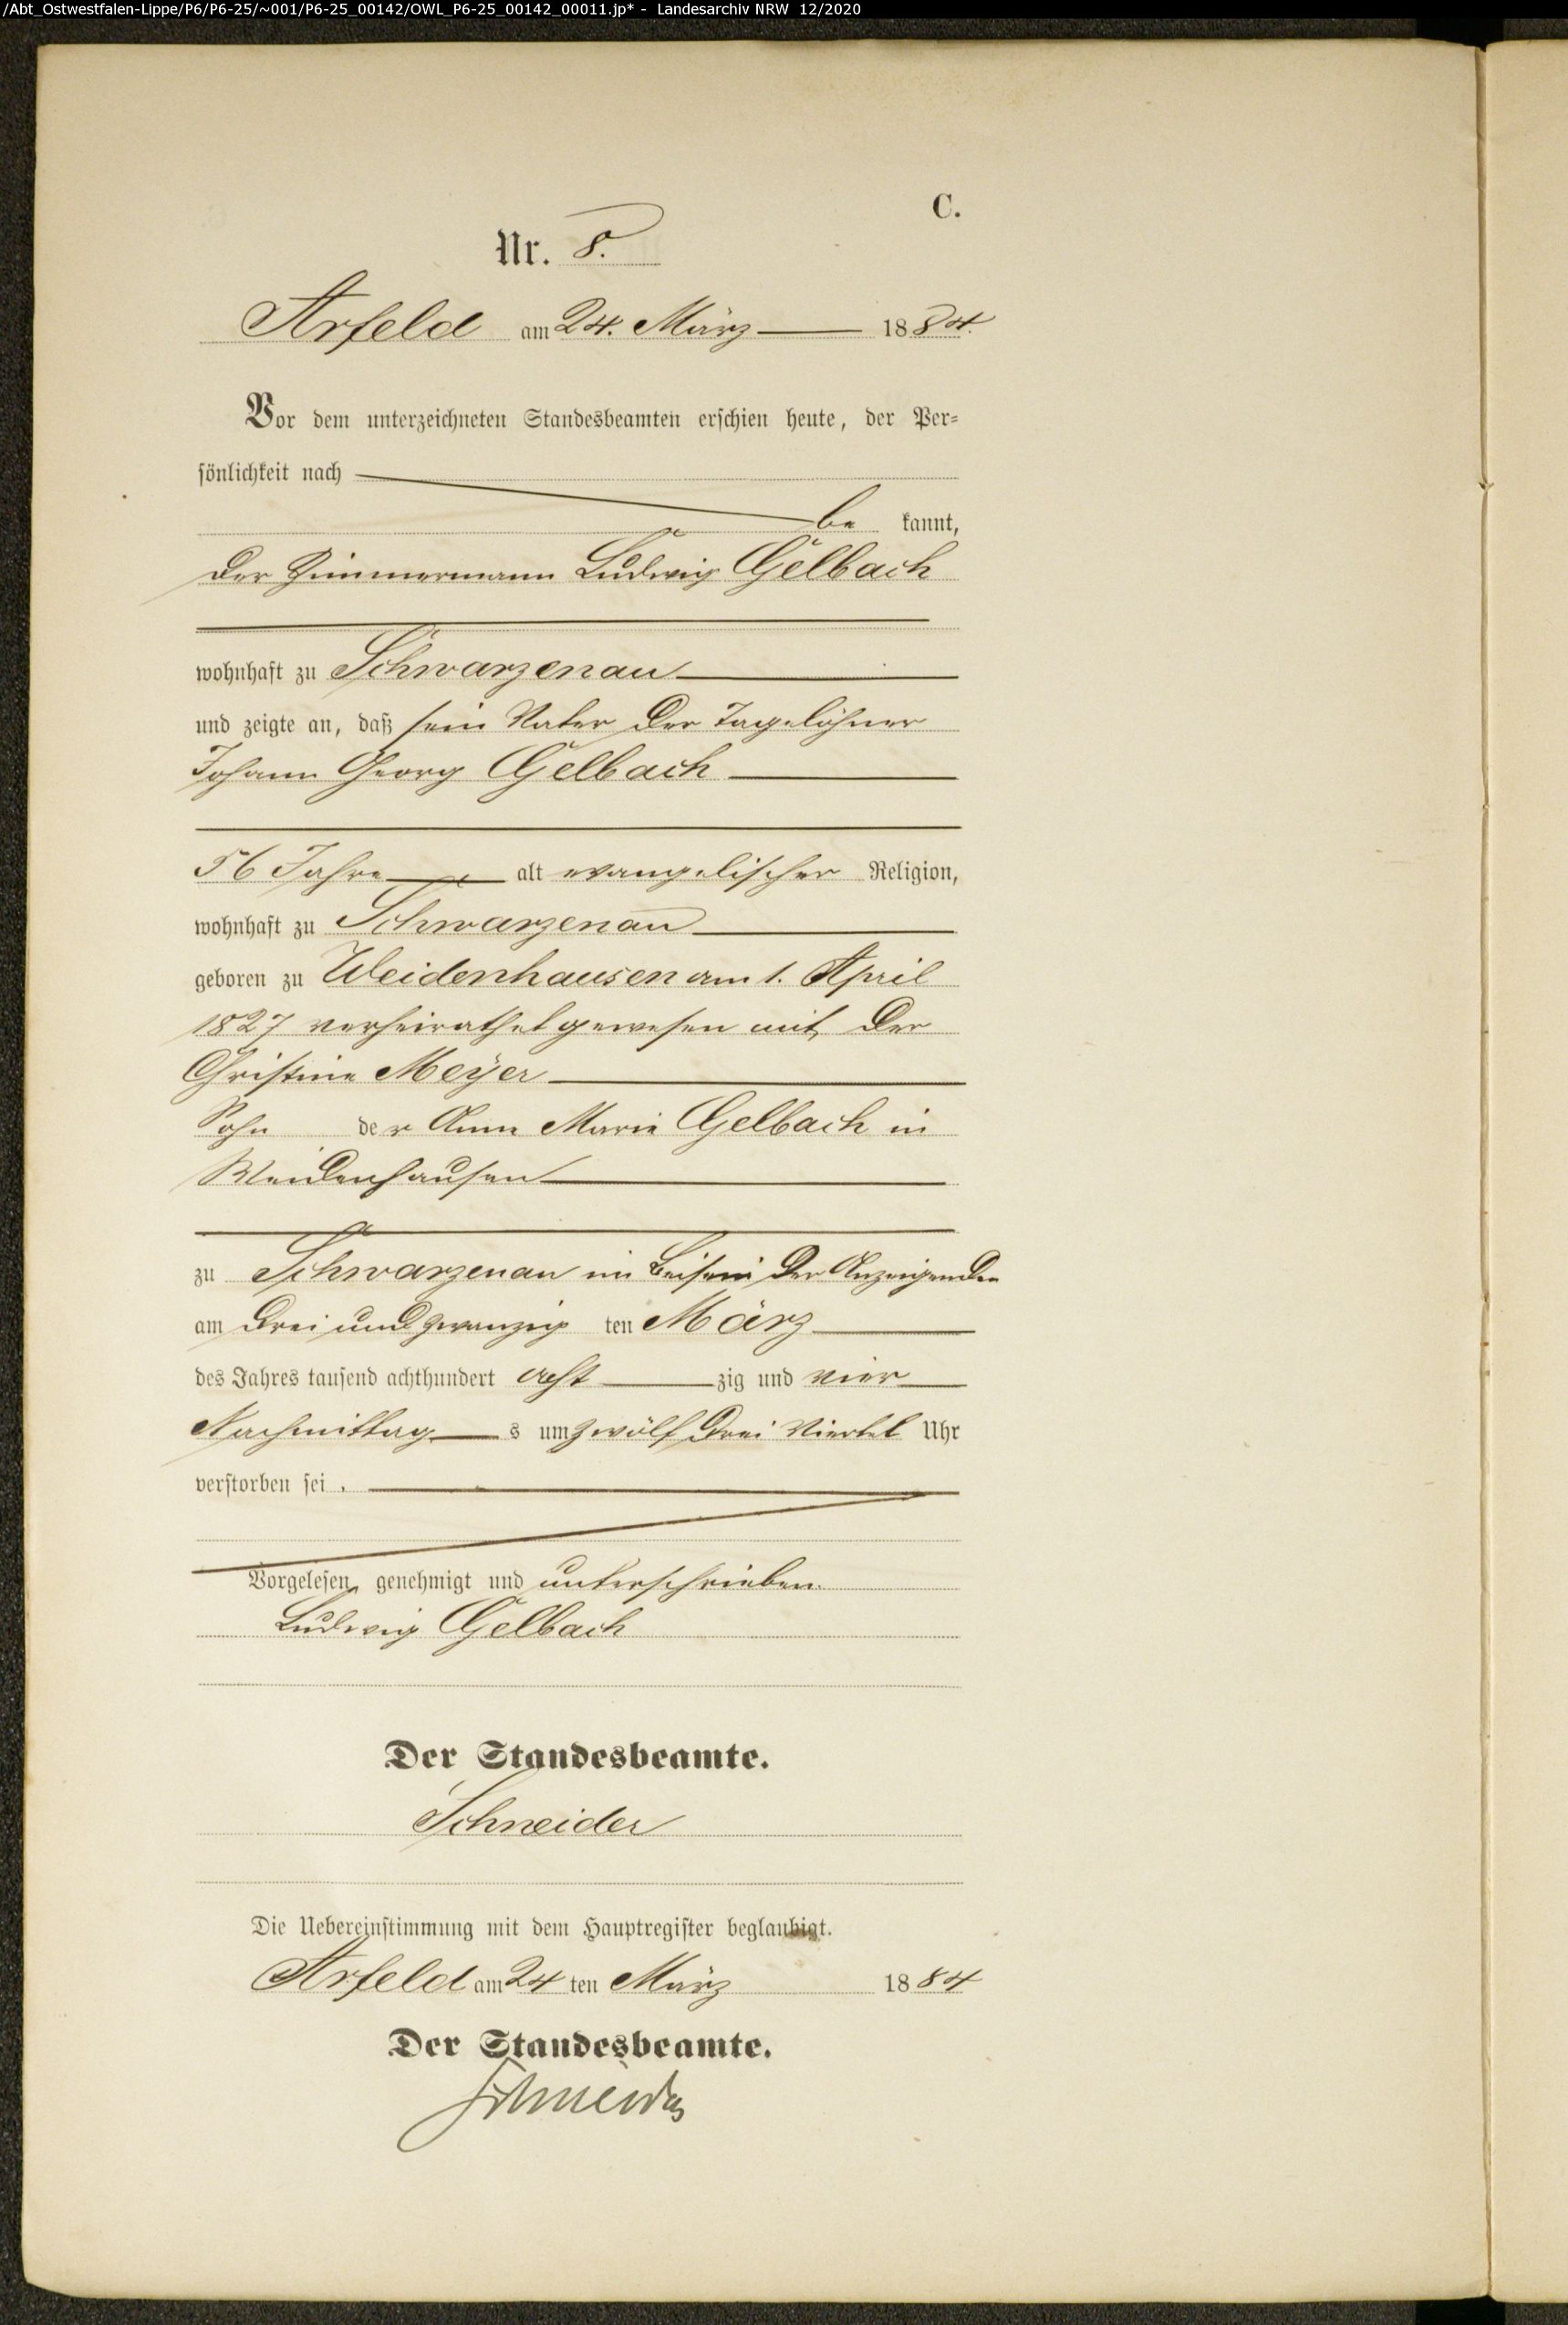 /Abt_Ostwestfalen-Lippe/P6/P6-25/~001/P6-25_00142/OWL_P6-25_00142_00011.jp* - Landesarchiv NRW 12/2020
C.
Nr. 8.
Arfeld am 24. März 1884.
Vor dem unterzeichneten Standesbeamten erschien heute, der Per-
sönlichkeit nach
be kannt,
der Zimmermann Ludwig Gelbach
wohnhaft zu Schwarzenau
und zeigte an, daß sein Vater der Tagelöhner
Johann Georg Gelbach
56 Jahre alt evangelischer Religion,
wohnhaft zu Schwarzenau
geboren zu Weidenhausen am 1. April
1827 verheirathet gewesen mit der
Christine Meyer
Sohn der Anna Maria Gelbach in
Weidenhausen
zu Schwarzenau im Beisein der Anzeigenden
am drei und zwanzig ten März
des Jahres tausend achthundert acht zig und vier
Nachmittag s um zwölf drei Viertel Uhr
verstorben sei.
Vorgelesen, genehmigt und unterschrieben.
Ludwig Gelbach
Der Standesbeamte.
Schneider
Die Uebereinstimmung mit dem Hauptregister beglaubigt.
Arfeld am 24 ten März 1884
Der Standesbeamte.
Schneider